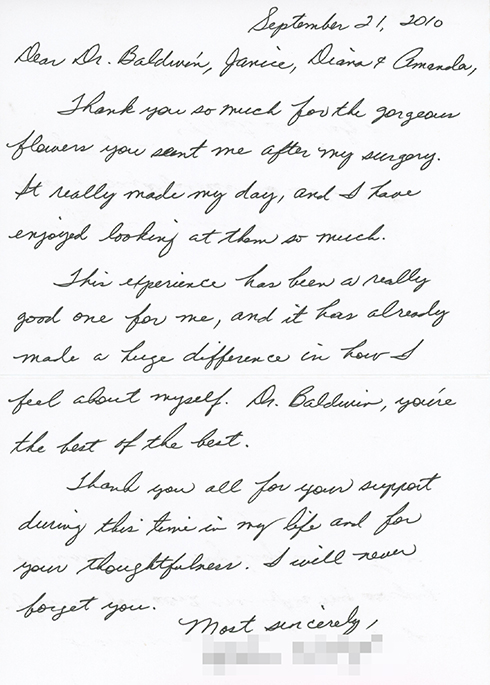 September 21, 2010
Dear Dr. Baldwin, Janice, Diana & Amanda,
Thank you so much for the gorgeous
flowers you sent me after my surgery.
It really made my day, and I have
enjoyed looking at them so much.
This experience has been a really
good one for me, and it has already
made a huge difference in how I
feel about myself. Dr. Baldwin, you're
the best of the best.
Thank you all for your support
during this time in my life and for
your thoughtfulness. I will never
forget you.
Most sincerely,